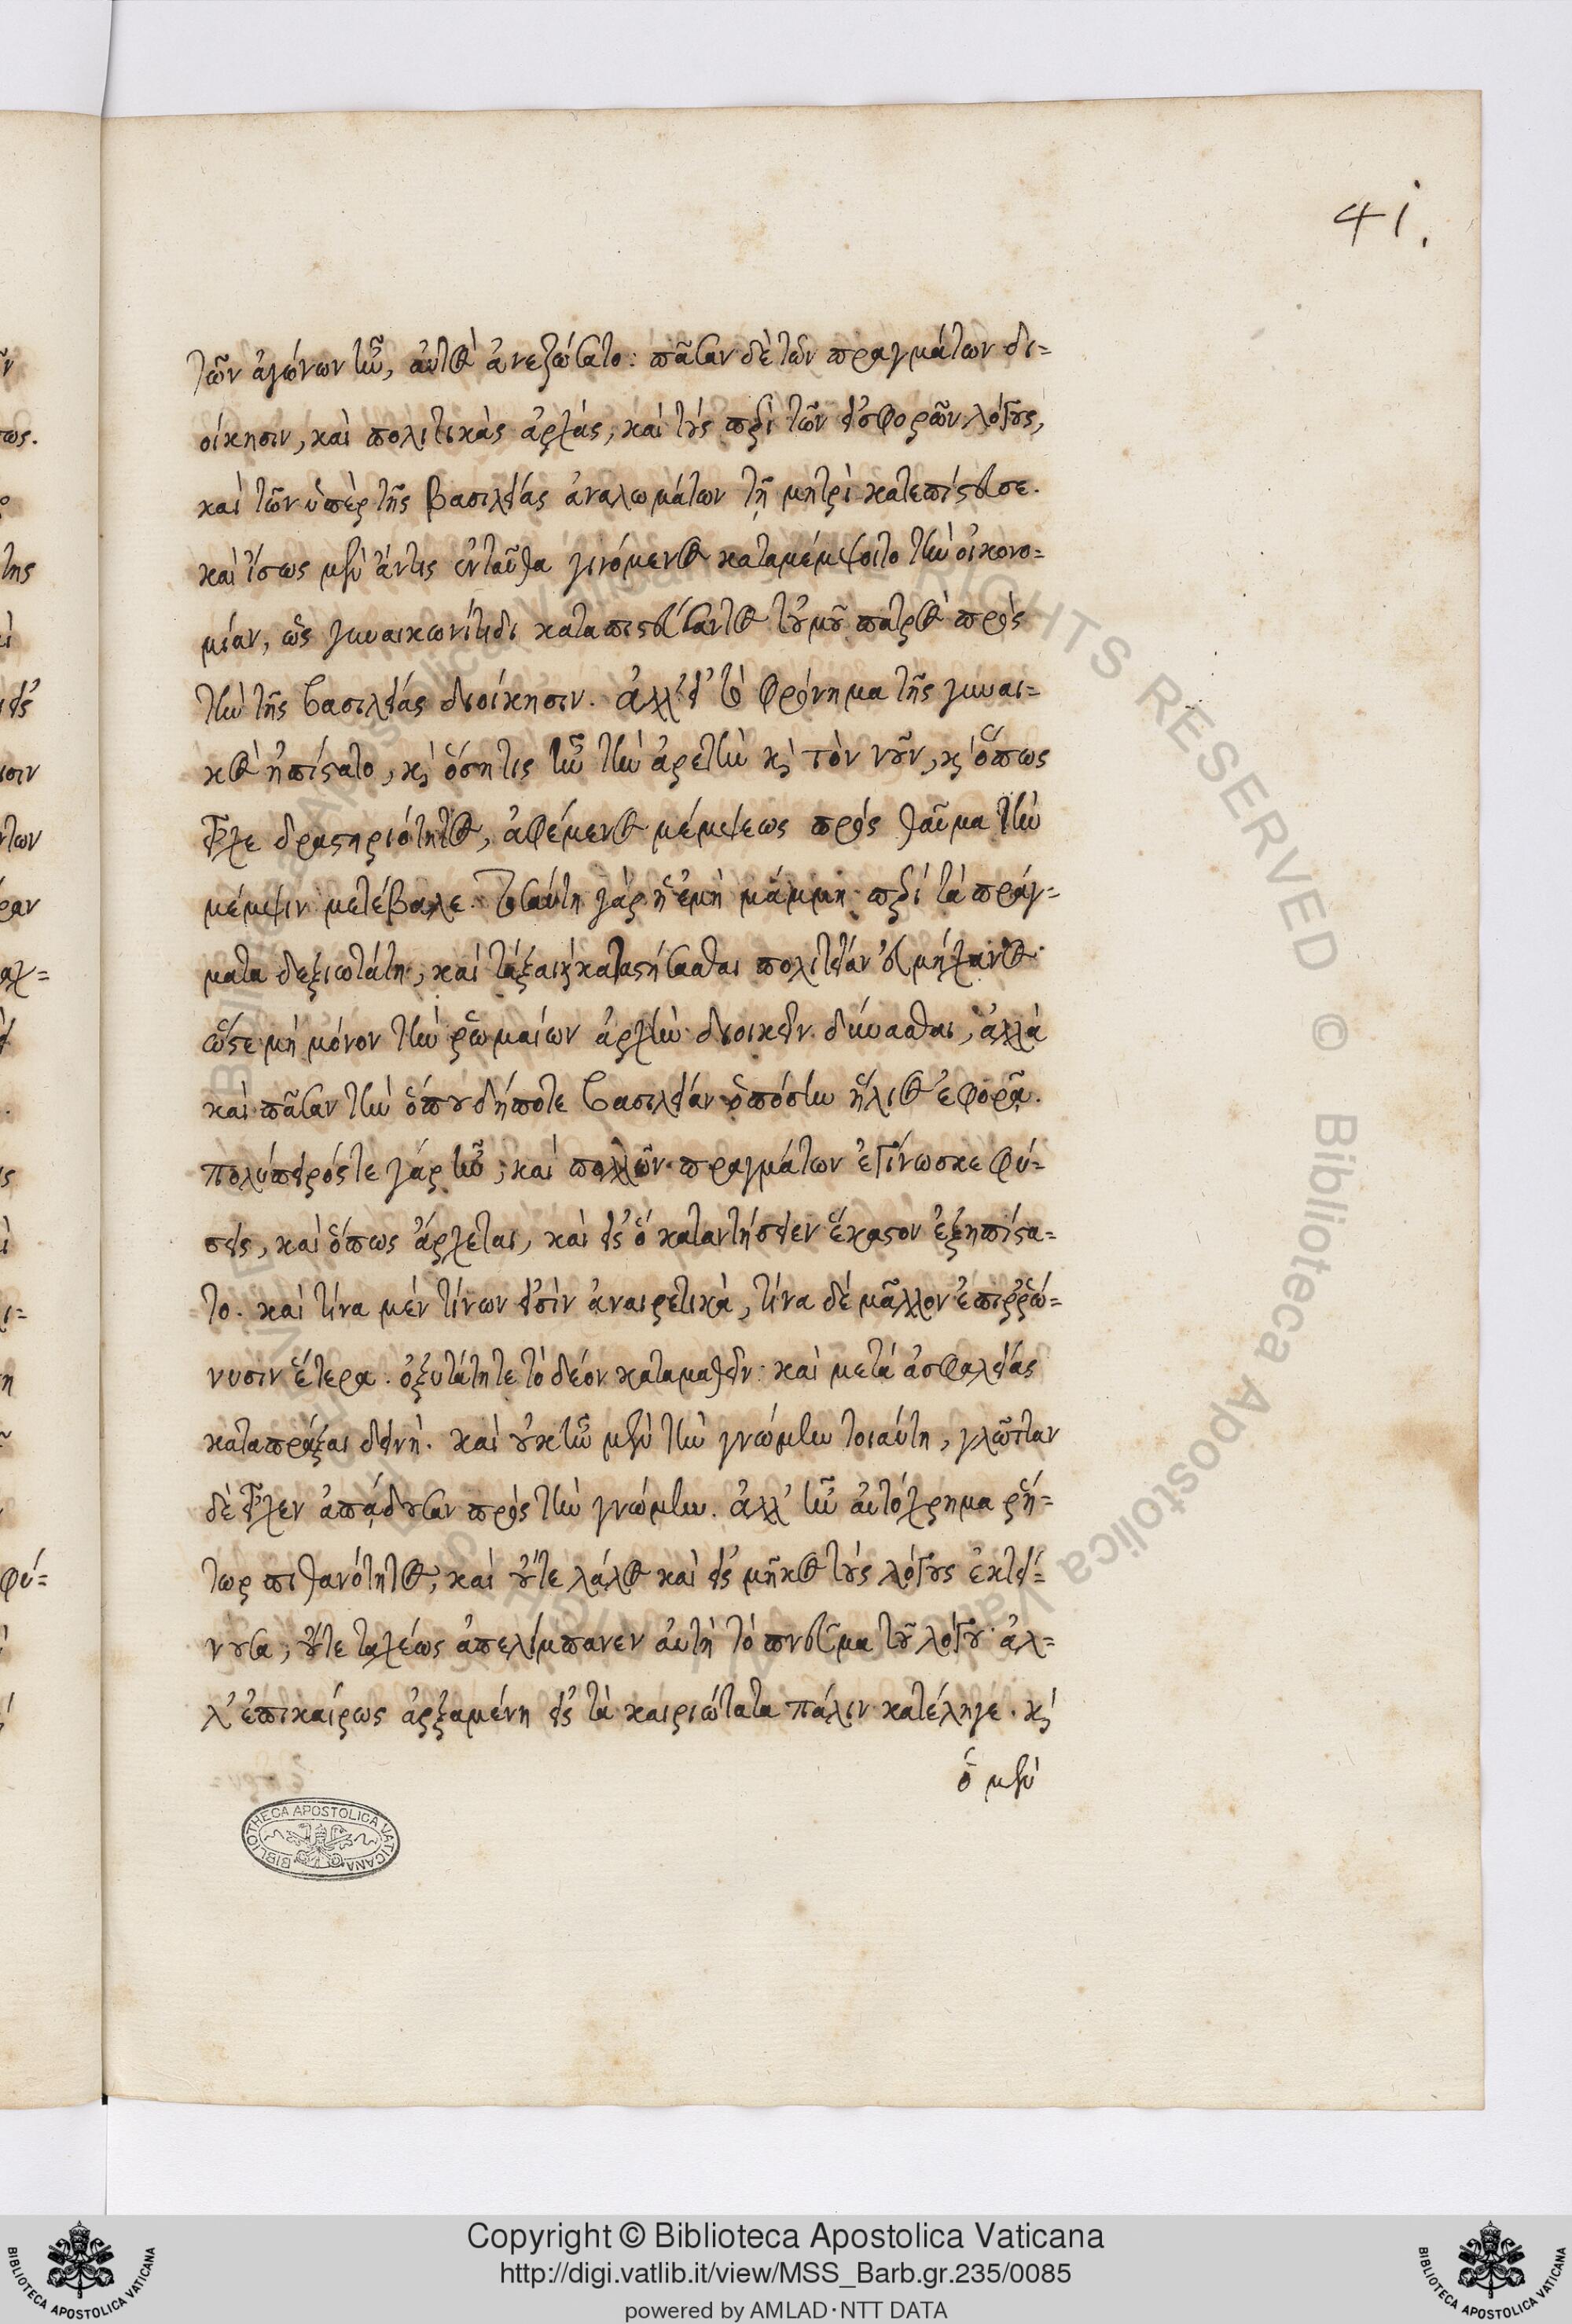 41.
τῶν ἀγώνων ἦν, αὐτὸς ἀνεζώσατο: πᾶσαν δὲ τῶν πραγμάτων δι=
οίκησιν, καὶ πολιτικὰς ἀρχάς, καὶ τοὺς περὶ τῶν εἰσφορῶν λόγους,
καὶ τῶν ὑπὲρ τῆς βασιλείας ἀναλωμάτων τῇ μητρὶ κατεπίστευσε.
καὶ ἴσως μὲν ἄν τις ἐνταῦθα γινόμενος καταμέμψοιτο τὴν οἰκονο=
μίαν, ὡς γυναικωνίτιδι καταπιστεύσαντος τοὐμοῦ πατρὸς πρὸς
τὴν τῆς βασιλείας διοίκησιν. ἀλλ' εἰ τὸ φρόνημα τῆς γυναι=
κὸς ἠπίστατο, κ̀ ὅση τις ἦν τὴν ἀρετὴν κ̀ τὸν νοῦν, κ̀ ὅπως
εἶχε δραστηριότητος, ἀφέμενος μέμψεως πρὸς θαῦμα τὴν
μέμψιν μετέβαλε. τοσαύτη γὰρ ἡ ἐμὴ μάμμη περὶ τὰ πράγ=
ματα δεξιωτάτη, καὶ τάξαι κ̀ καταστήσασθαι πολιτείαν εὐμήχανος
ὥστε μὴ μόνον τὴν ῥωμαίων ἀρχὴν διοικεῖν δύνασθαι, ἀλλὰ
καὶ πᾶσαν τὴν ὅπου δήποτε βασιλείαν ὁπόσην ἥλιος ἐφορᾷ.
πολύπειρός τε γὰρ ἦν, καὶ πολλῶν πραγμάτων ἐγίνωσκε φύ=
σεις, καὶ ὅπως ἄρχεται, καὶ εἰς ὃ καταντήσειεν ἕκαστον ἐξηπίστα=
το. καὶ τίνα μὲν τίνων εἰσὶν ἀναιρετικὰ, τίνα δὲ μᾶλλον ἐπιῤῥώ=
νυσιν ἕτερα. ὀξυτάτη τε τὸ δέον καταμαθεῖν: καὶ μετὰ ἀσφαλείας
καταπρᾶξαι δεινή. καὶ οὐκ ἦν μὲν τὴν γνώμην τοιαύτη, γλῶτταν
δὲ εἶχεν ἀπᾴδουσαν πρὸς τὴν γνώμην. ἀλλ' ἦν αὐτόχρημα ῥή=
τωρ πιθανότητος, καὶ οὔτε λάλος καὶ εἰς μῆκος τοὺς λόγους ἐκτεί=
νουσα, οὔτε ταχέως ἀπελίμπανεν αὐτὴ τὸ πνεῦμα τοῦ λόγου· ἀλ=
λ' ἐπικαίρως ἀρξαμένη εἰς τὰ καιριώτατα πάλιν κατέληγε. κ̀
ὁ μὲν
BIBLIOTHECA APOSTOLICA VATICANA
Copyright © Biblioteca Apostolica Vaticana
http://digi.vatlib.it/view/MSS_Barb.gr.235/0085
powered by AMLAD·NTT DATA